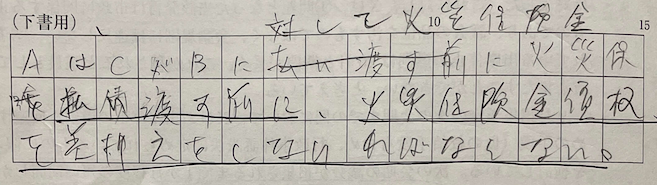 （下書用） 対して火災保険金 10 15
AはCがBに払い渡す前に火災保
険を払債渡す前に、火災保険金債権
を差押えをしなければならない。